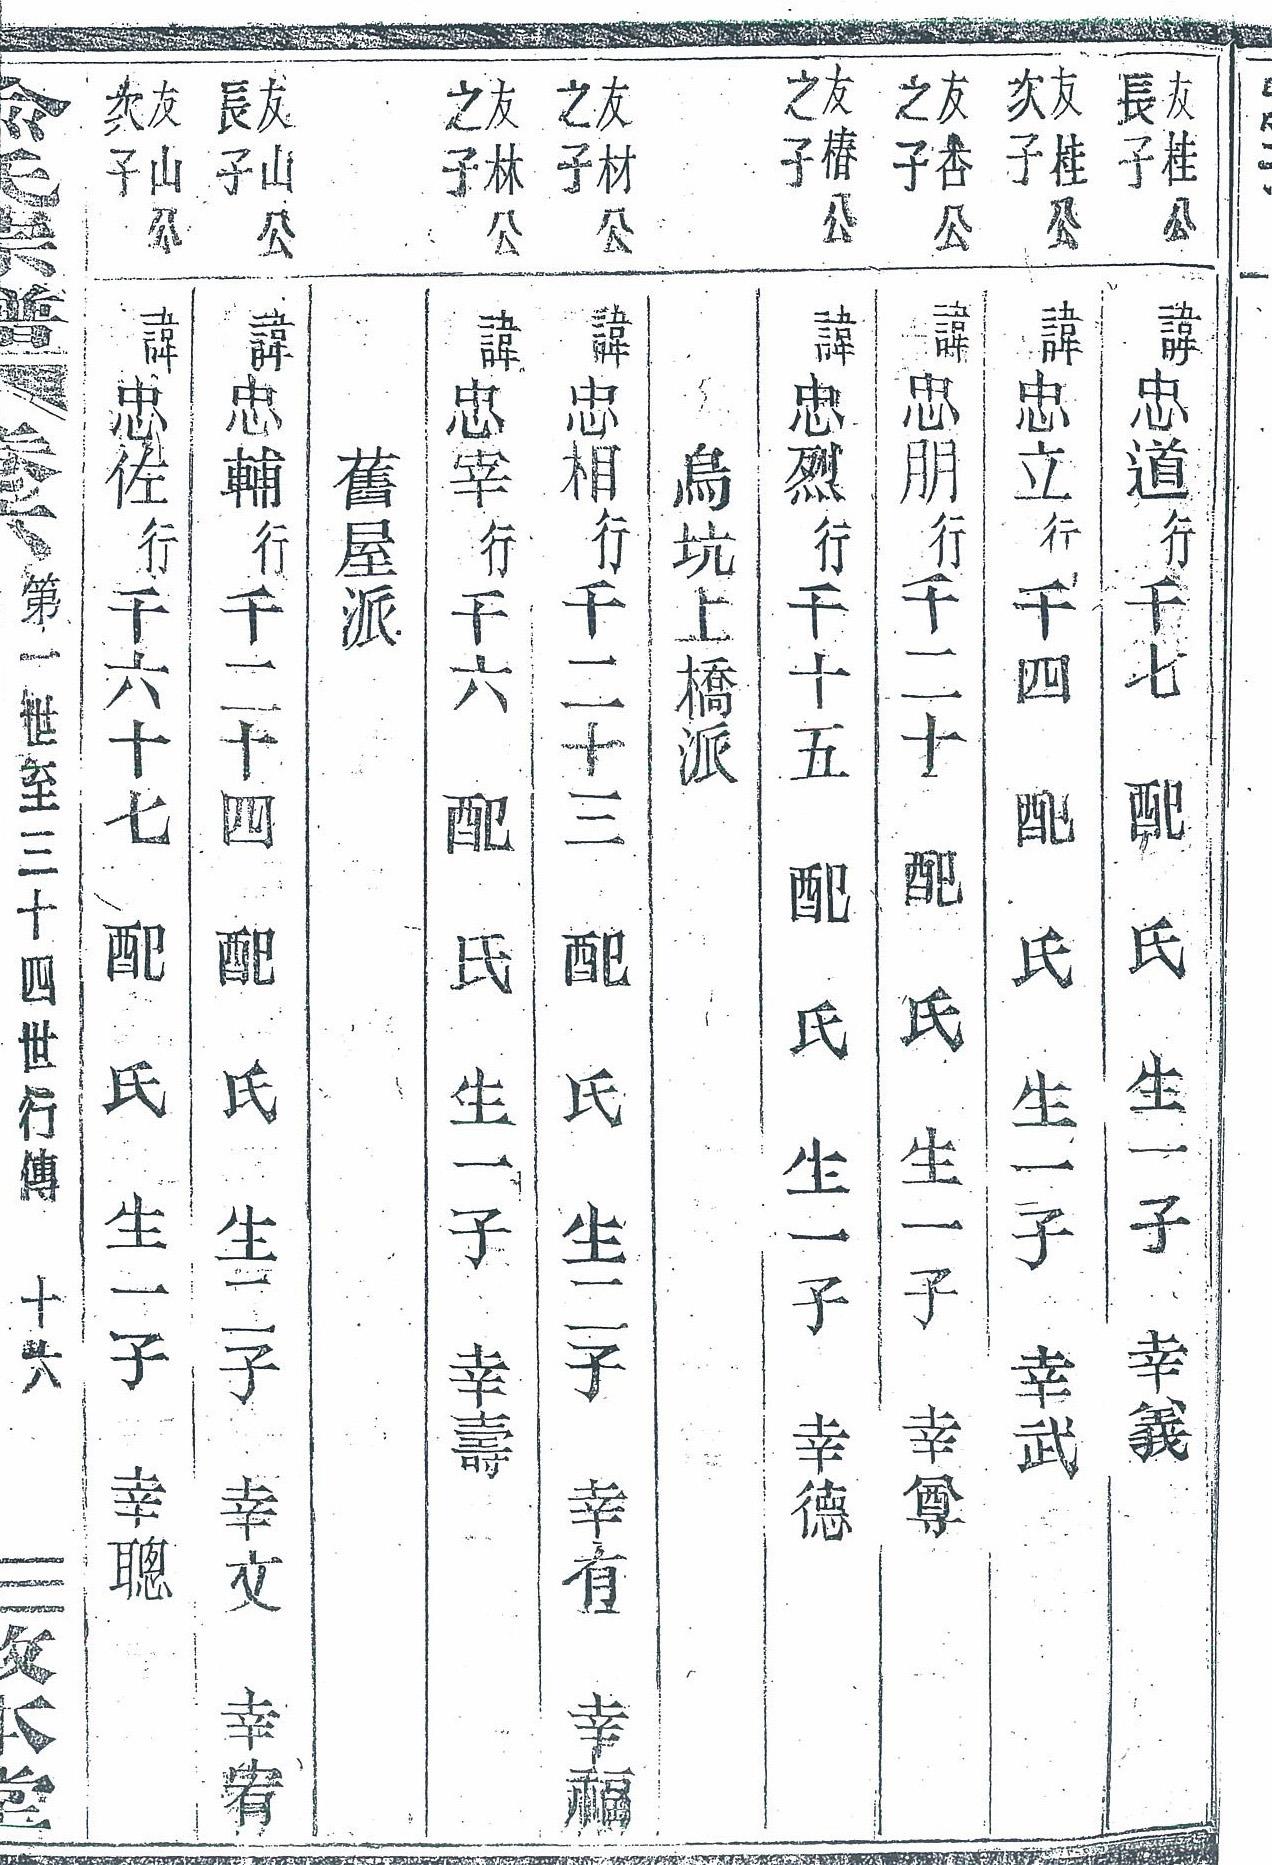 友桂公長子 諱忠道行千七 配 氏 生一子 幸義
友桂公次子 諱忠立行千四 配 氏 生一子 幸武
友杏公之子 諱忠朋行千二十 配 氏 生一子 幸尊
友椿公之子 諱忠烈行千十五 配 氏 生一子 幸德
烏坑上橋派
友材公之子 諱忠相行千二十三 配 氏 生二子 幸有 幸福
友林公之子 諱忠宰行千六 配 氏 生一子 幸壽
舊屋派
友山公長子 諱忠輔行千二十四 配 氏 生二子 幸文 幸宥
友山公次子 諱忠佐行千六十七 配 氏 生一子 幸聰
氏宗譜 卷六 第一世至三十四世行傳 十六 本堂